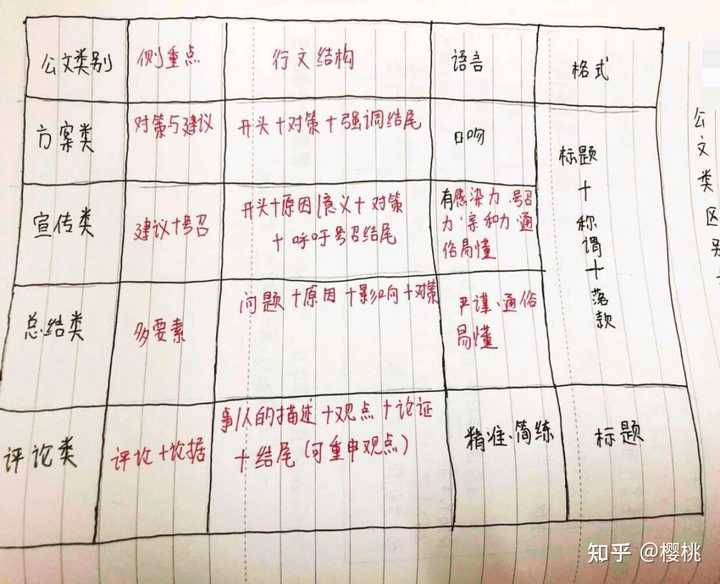 公文类别 侧重点 行文结构 语言 格式
方案类 对策与建议 开头+对策+强调结尾 口吻
标题+称谓+落款
宣传类 建议+号召 开头+原因|意义+对策
+呼吁号召结尾
有感染力·号召
力·亲和力·通
俗易懂
总结类 多要素 问题+原因+影响+对策 严谨·通俗
易懂
评论类 评论+论据 事/人的描述+观点+论证
+结尾(可重申观点)
精准·简练 标题
公文类区别
知乎 @樱桃